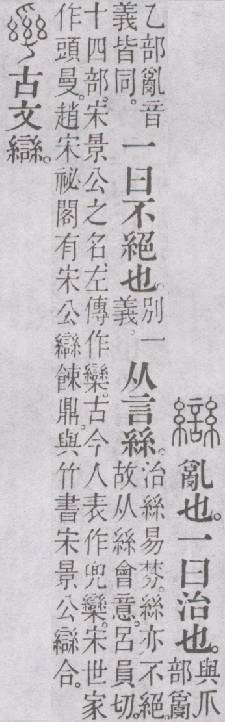 䜌 亂也。一曰治也。與爪部𤔔
乙部亂音義皆同。一曰不絕也。別一義。从言絲。治絲易棼。絲亦不絕。故从絲會意。呂員切。
十四部。宋景公之名。左傳作欒。古今人表作兜欒。宋世家作頭曼。趙宋祕閣有宋公䜌餗鼎。與竹書宋景公䜌合。
古文䜌。